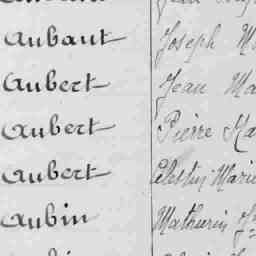 Aubaut Joseph
Aubert Jean Ma
Aubert Pierre Ma
Aubert Celestin Marie
Aubin Mathurin